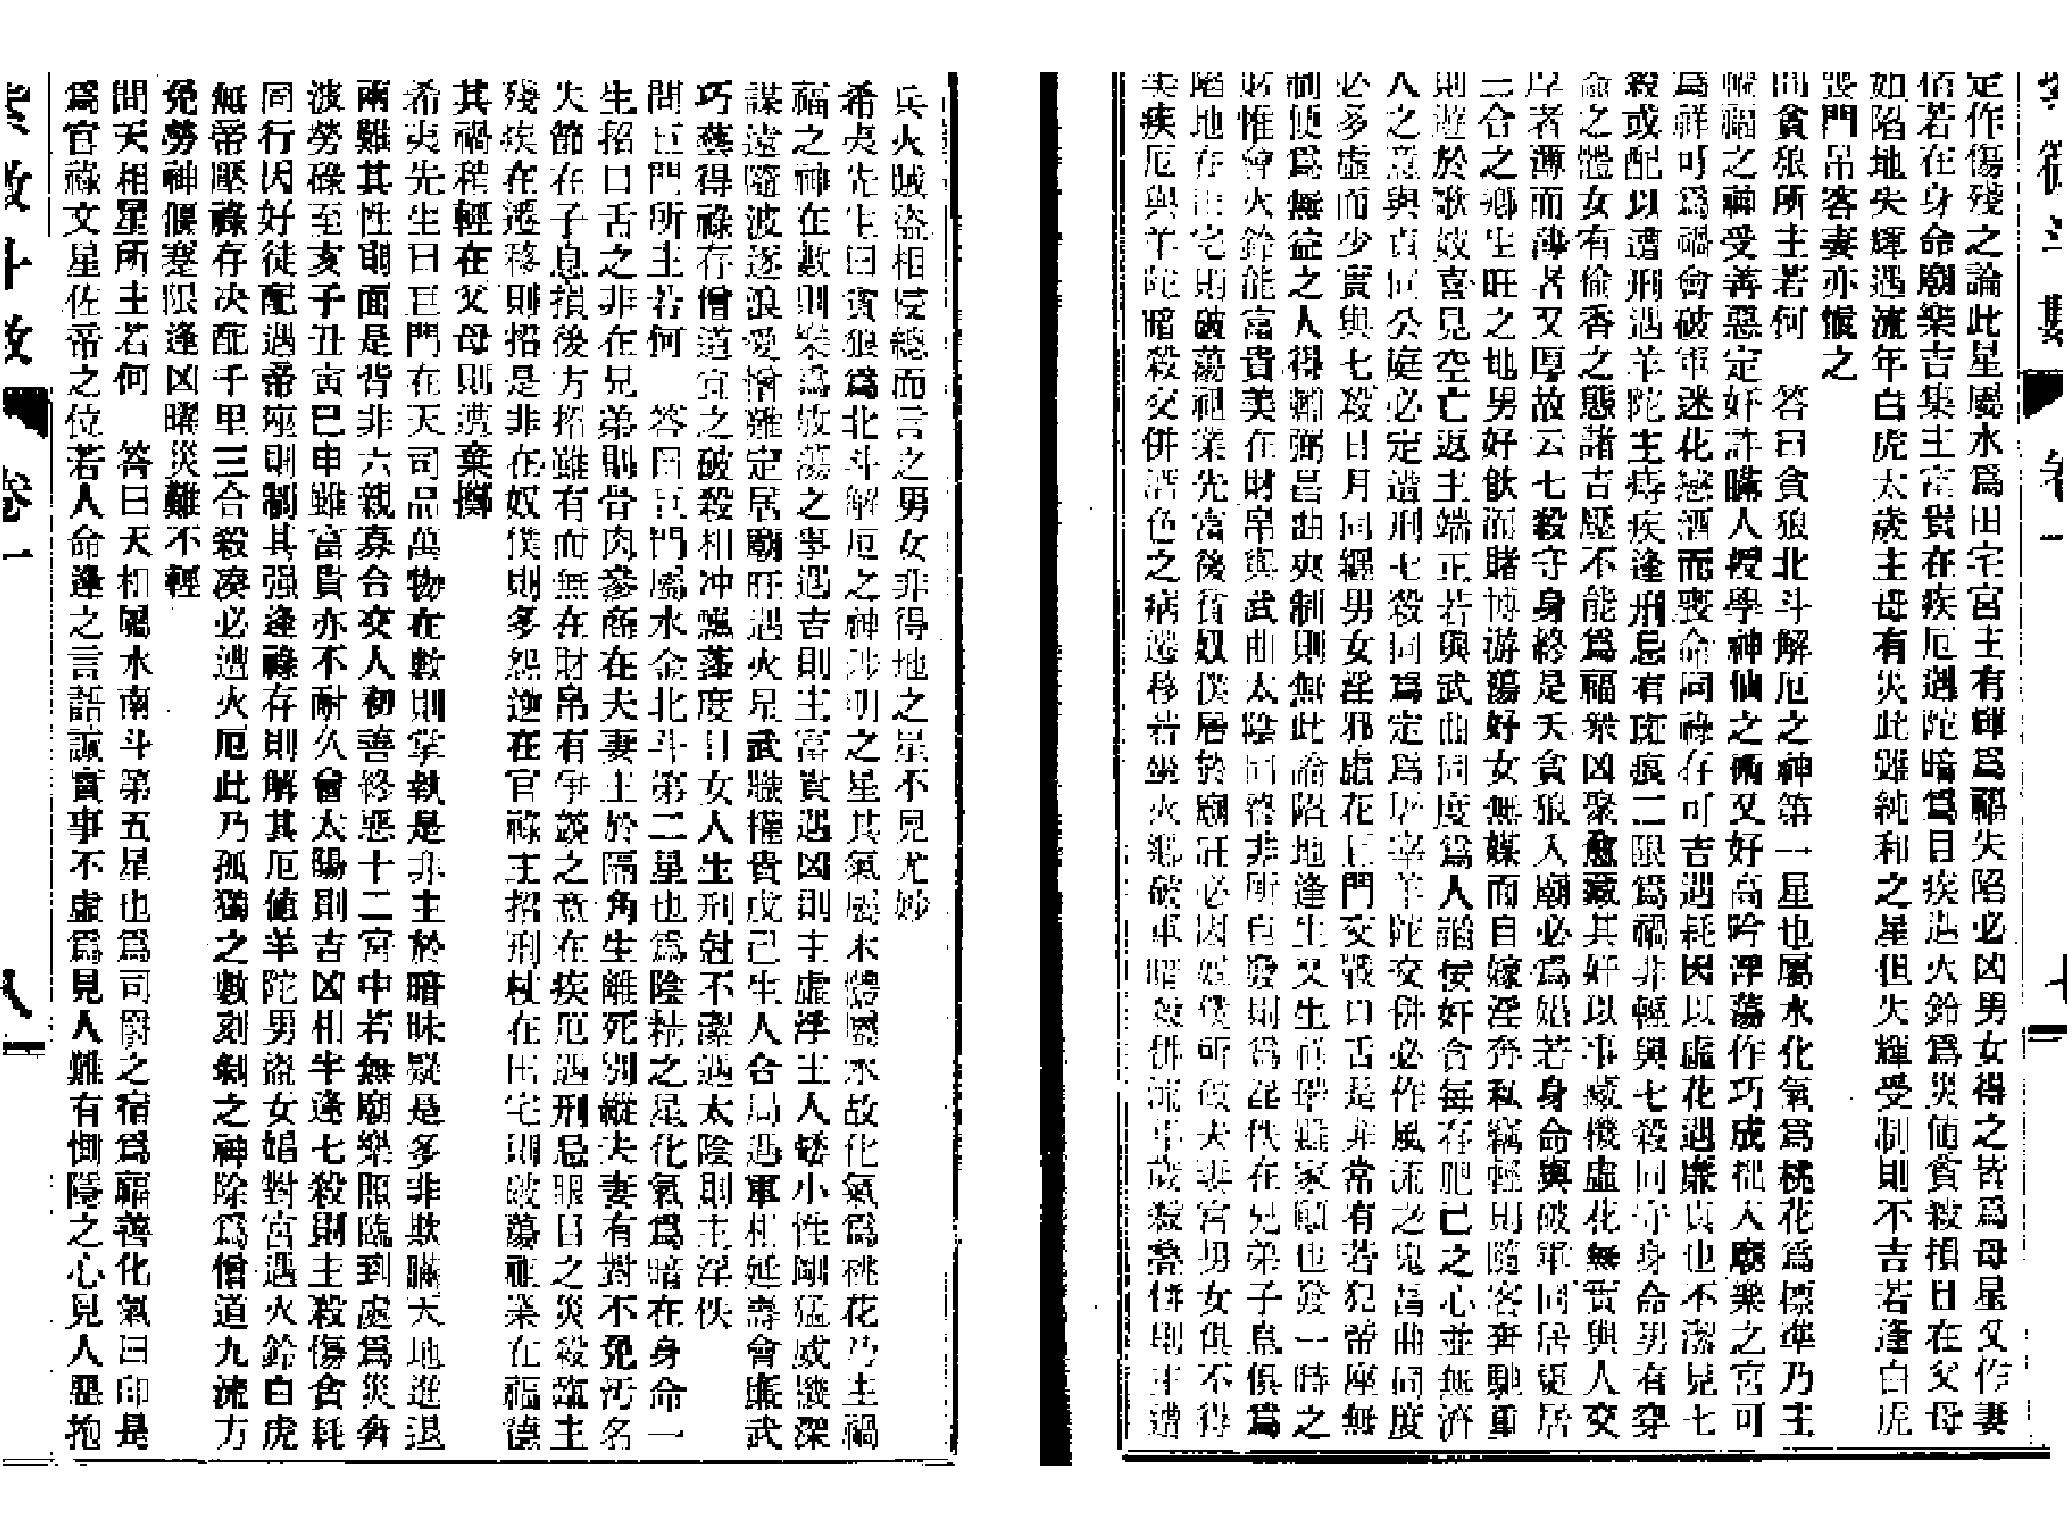 定作傷殘之論此星屬水爲田宅宮主有輝爲福失陷必凶男女得之皆爲母星又作妻
宿若在身命廟樂吉集主富貴在疾厄遇陀暗爲目疾遇火鈴爲災値貧殺損目在父母
如陷地失輝遇流年白虎太歲主母有災此雖純和之星但失輝受制則不吉若逢白虎
喪門吊客妻亦慎之
問貪狼所主若何 答曰貪狼北斗解厄之神第一星也屬水化氣爲桃花爲標準乃主
禍福之神受善惡定奸詐瞞人授學神仙之術又好高吟浮蕩作巧成拙入廟樂之宮可
爲祥可爲禍會破軍迷花戀酒而喪命同祿存可吉遇耗囚以虛花遇廉貞也不潔見七
殺或配以遭刑遇羊陀主痔疾逢刑忌有斑痕二限爲禍非輕與七殺同守身命男有穿
窬之體女有偷香之態諸吉壓不能爲福衆凶聚愈藏其奸以事藏機虛花無實與人交
厚者薄而薄者又厚故云七殺守身終是夭貪狼入廟必爲娼若身命與破軍同居更居
三合之鄉生旺之地男好飲而賭博游蕩好女無媒而自嫁淫奔私竊輕則隨客奔馳重
則遊於歌妓喜見空亡返主端正若與武曲同度爲人諂佞奸合每存肥己之心並無濟
人之意與貞同公庭必定遭刑七殺同爲定爲屠宰羊陀交併必作風流之鬼昌曲同度
必多虛而少實與七殺日月同纏男女淫邪虛花巨門交戰口舌是非常有若犯帝座無
制便爲無益之人得輔弼昌曲夾制則無此論陷地逢生又生祥瑞雖家顛也發一時之
財惟會火鈴能富貴美在財帛與武曲太陰同終非所宜發則爲淫佚在兄弟子息俱爲
陷地在田宅則破蕩祖業先富後貧奴僕居於廟旺必因奴僕所破夫妻宮男女俱不得
美疾厄與羊陀暗殺交併酒色之病遷移若坐火鄉破軍暗殺併流年歲殺叠併則主遭
兵火賊盜相侵總而言之男女非得地之星不見尤妙
希夷先生曰貪狼爲北斗解厄之神涉明之星其氣屬木體屬水故化氣爲桃花乃主禍
福之神在數則樂爲放蕩之事遇吉則主富貴遇凶則主虛浮主人矮小性剛猛威機深
謀遠隨波逐浪愛憎難定居廟旺遇火星武職權貴戊己生人合局遇軍相延壽會廉武
巧藝得祿存僧道宜之破殺相冲飄蓬度日女人生刑尅不潔遇太陰則主淫佚
問巨門所主若何 答曰巨門屬水金北斗第二星也爲陰精之星化氣爲暗在身命一
生招口舌之非在兄弟則骨肉參商在夫妻主於隔角生離死別縱夫妻有對不免污名
失節在子息損後方招雖有而無在財帛有爭競之意在疾厄遇刑忌眼目之災殺臨主
殘疾在遷移則招是非在奴僕則多怨逆在官祿主招刑杖在田宅則破蕩祖業在福德
其禍稍輕在父母則遭棄擲
希夷先生曰巨門在天司品萬物在數則掌執是非主於暗昧疑是多非欺瞞天地進退
兩難其性則面是背非六親寡合交人初善終惡十二宮中若無廟樂照臨到處爲災奔
波勞碌至亥子丑寅巳申雖富貴亦不耐久會太陽則吉凶相半逢七殺則主殺傷貪耗
同行因好徒配遇帝座則制其强逢祿存則解其厄値羊陀男盜女娼對宮遇火鈴白虎
無帝壓祿存决配千里三合殺凑必遭火厄此乃孤獨之數刻剝之神除爲僧道九流方
免勞神偃蹇限逢凶曜災難不輕
問天相星所主若何 答曰天相屬水南斗第五星也爲司爵之宿爲福善化氣曰印是
爲官祿文星佐帝之位若人命逢之言語誠實事不虛爲見人難有惻隱之心見人惡抱
紫微斗數 卷一 八